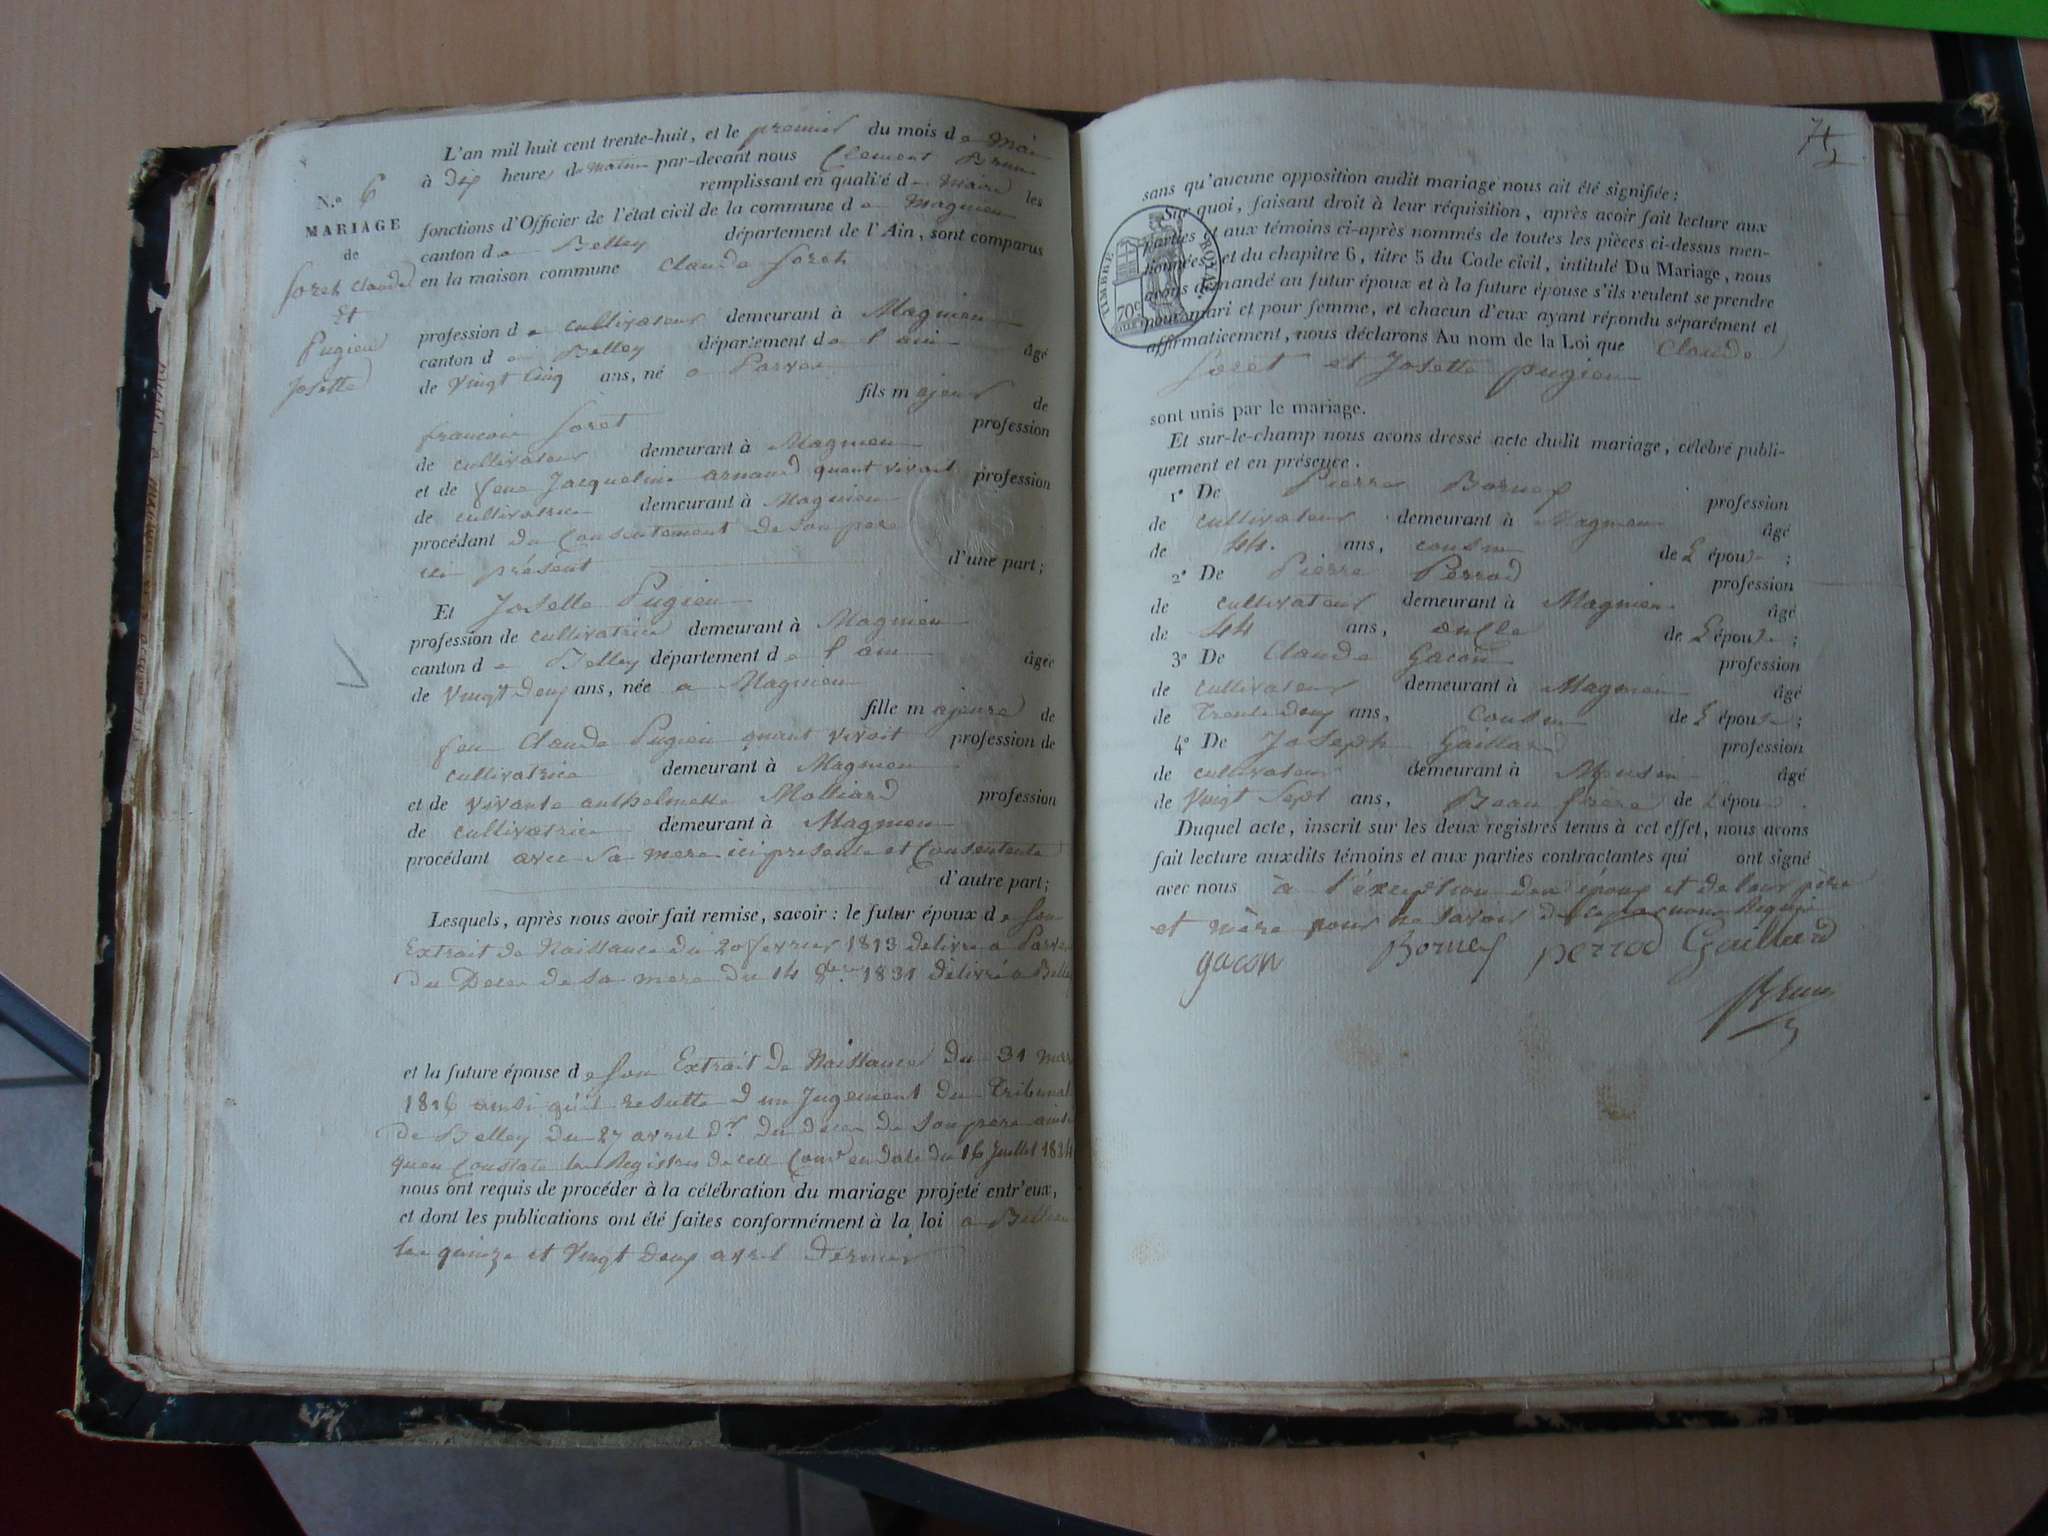 L'an mil huit cent trente-huit, et le premier du mois de Mai
à Dix heures du Matin par-devant nous Clement Brun
remplissant en qualité de Maire les
N.o 6
MARIAGE
de
Soret Claude
Et
Pugieu
Josette
fonctions d'Officier de l'état civil de la commune de Magnieu
canton de Belley département de l'Ain, sont comparus
en la maison commune Claude Soret
profession de cultivateur demeurant à Magnieu
canton de Belley département de l'ain âgé
de Vingt Cinq ans, né a Parves
fils majeur de
francois Soret profession
de cultivateur demeurant à Magnieu
et de feue Jacqueline arnaud quant vivait profession
de cultivatrice demeurant à Magnieu
procédant du Consentement de Son pere
ici présent d'une part;
Et Josette Pugieu
profession de cultivatrice demeurant à Magnieu
canton de Belley département de l'ain âgée
de Vingt Deux ans, née a Magnieu
fille majeure de
feu Claude Pugieu quant vivait profession de
cultivatrice demeurant à Magnieu
et de vivante anthelmette Molliard profession
de cultivatrice demeurant à Magnieu
procédant avec Sa mere ici presente et Consentente
d'autre part;
Lesquels, après nous avoir fait remise, savoir: le futur époux de Son
Extrait de Naissance du 20 fevrier 1813 delivré a Parves
Du Deces de Sa mere du 14 8bre 1831 délivré a Belley
et la future épouse de Son Extrait de Naissance du 31 mars
1816 ainsi qu'il resulte d'un Jugement du Tribunal
de Belley du 27 avril dr. du deces de Son pere ainsi
quen Constate les Registres de cette Come en date du 16 Juillet 1824
nous ont requis de procéder à la célébration du mariage projeté entr'eux,
et dont les publications ont été faites conformément à la loi a
les quinze et Vingt Deux avril Dernier
sans qu'aucune opposition audit mariage nous ait été signifiée;
Sur quoi, faisant droit à leur réquisition, après avoir fait lecture aux
parties et aux témoins ci-après nommés de toutes les pièces ci-dessus men-
tionnées, et du chapitre 6, titre 5 du Code civil, intitulé Du Mariage, nous
avons demandé au futur époux et à la future épouse s'ils veulent se prendre
pour mari et pour femme, et chacun d'eux ayant répondu séparément et
affirmativement, nous déclarons Au nom de la Loi que Claude
Soret et Josette pugieu
TIMBRE ROYAL
70c
sont unis par le mariage.
Et sur-le-champ nous avons dressé acte dudit mariage, célébré publi-
quement et en présence.
1o De Pierre Bornex profession
de cultivateur demeurant à Magnieu âgé
de 44. ans, cousin de L'épouse;
2o De Pierre Perrod profession
de cultivateur demeurant à Magnieu âgé
de 44 ans, oncle de L'épouse;
3o De Claude Gacon profession
de cultivateur demeurant à Magnieu âgé
de Trente Deux ans, Cousin de L'épouse;
4o De Joseph Gaillard profession
de cultivateur demeurant à âgé
de Vingt Sept ans, Beau frère de L'époux.
Duquel acte, inscrit sur les deux registres tenus à cet effet, nous avons
fait lecture auxdits témoins et aux parties contractantes qui ont signé
avec nous à l'exception des époux et de leur père
et mère pour ne Savoir de ce par nous Requis
gacon Bornex perrod Gaillard
Brun